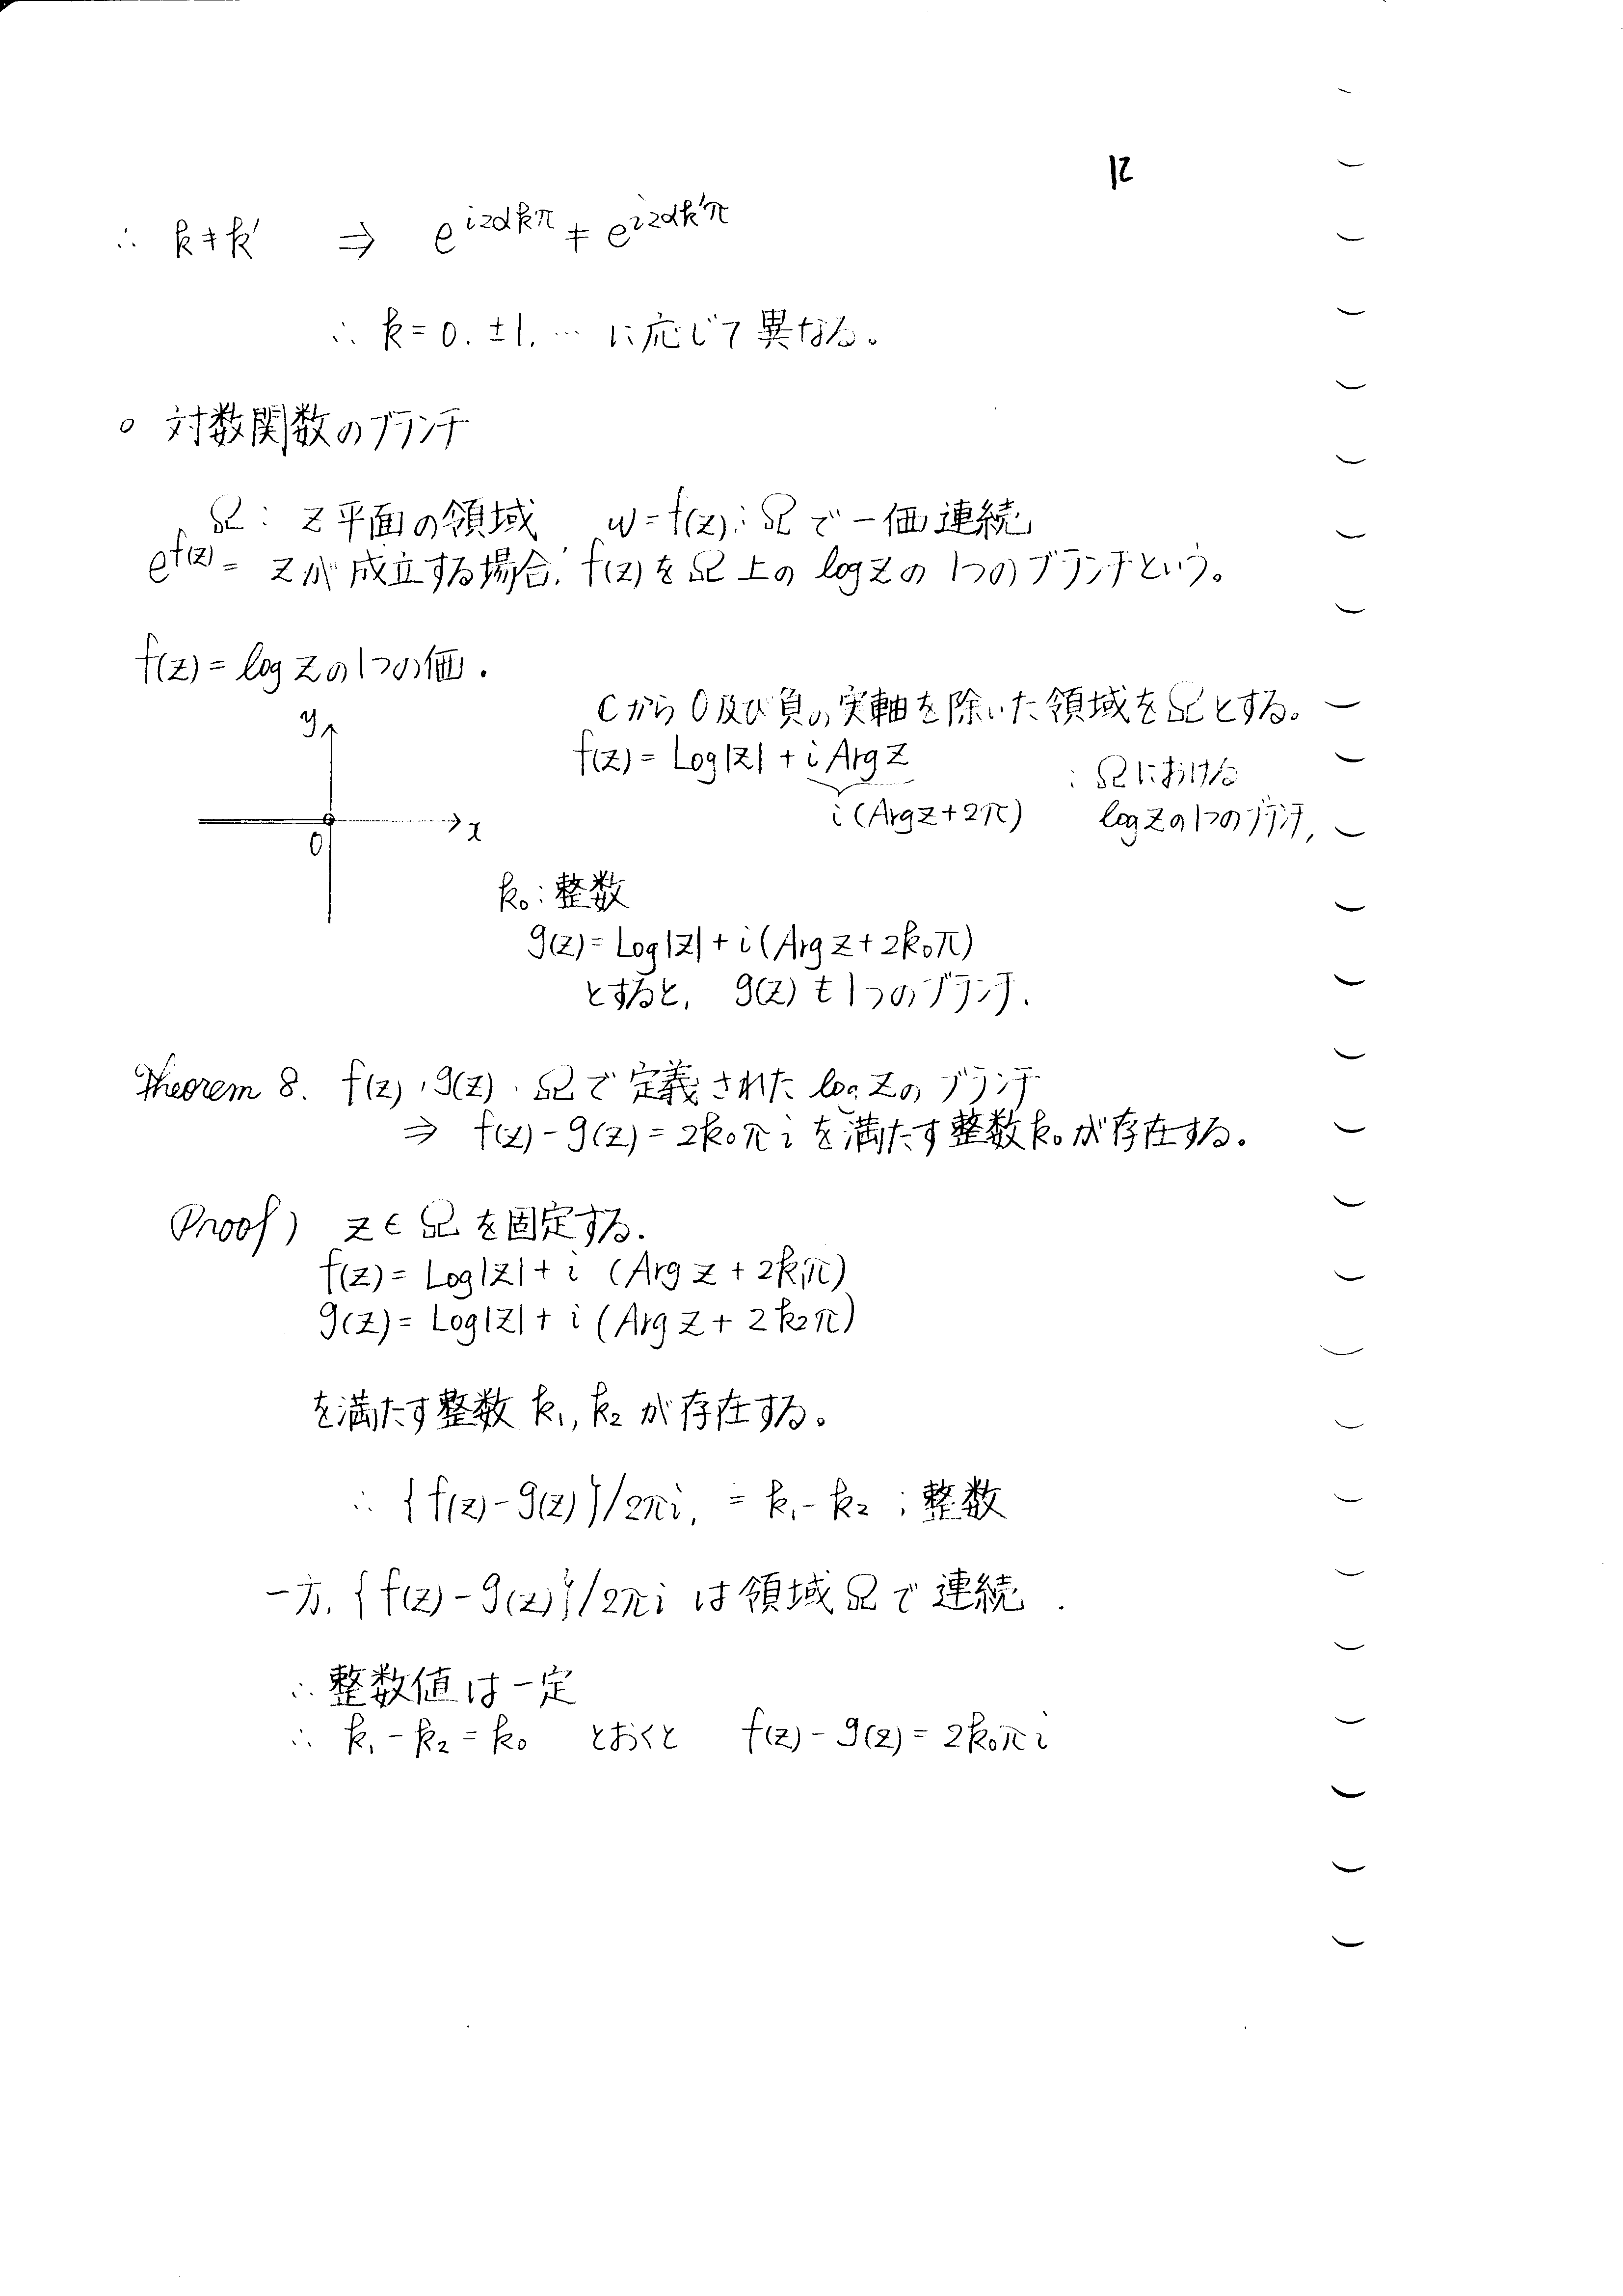 12
∴ k≠k′ ⇒ e^{i2αkπ} ≠ e^{i2αk′π}
∴ k=0, ±1, … に応じて異なる。
○ 対数関数のブランチ
Ω: z平面の領域 w=f(z): Ωで一価連続
e^{f(z)} = zが成立する場合, f(z)をΩ上のlog zの1つのブランチという。
f(z)=log zの1つの価.
Cから0及び負の実軸を除いた領域をΩとする。
f(z)= Log|z| + i Arg z : Ωにおける
i(Arg z+2π) log zの1つのブランチ,
y
x
0
k₀: 整数
g(z)= Log|z| + i(Arg z+2k₀π)
とすると, g(z) も1つのブランチ.
Theorem 8. f(z), g(z) . Ωで定義されたlog zのブランチ
⇒ f(z)-g(z)=2k₀πi を満たす整数k₀が存在する.
Proof) z∈Ωを固定する.
f(z)= Log|z|+ i (Arg z + 2k₁π)
g(z)= Log|z|+ i (Arg z + 2k₂π)
を満たす整数 k₁, k₂ が存在する。
∴ {f(z)-g(z)}/2πi, = k₁-k₂ ; 整数
一方, {f(z)-g(z)}/2πi は領域Ωで連続.
∴ 整数値は一定
∴ k₁-k₂=k₀ とおくと f(z)-g(z)=2k₀πi